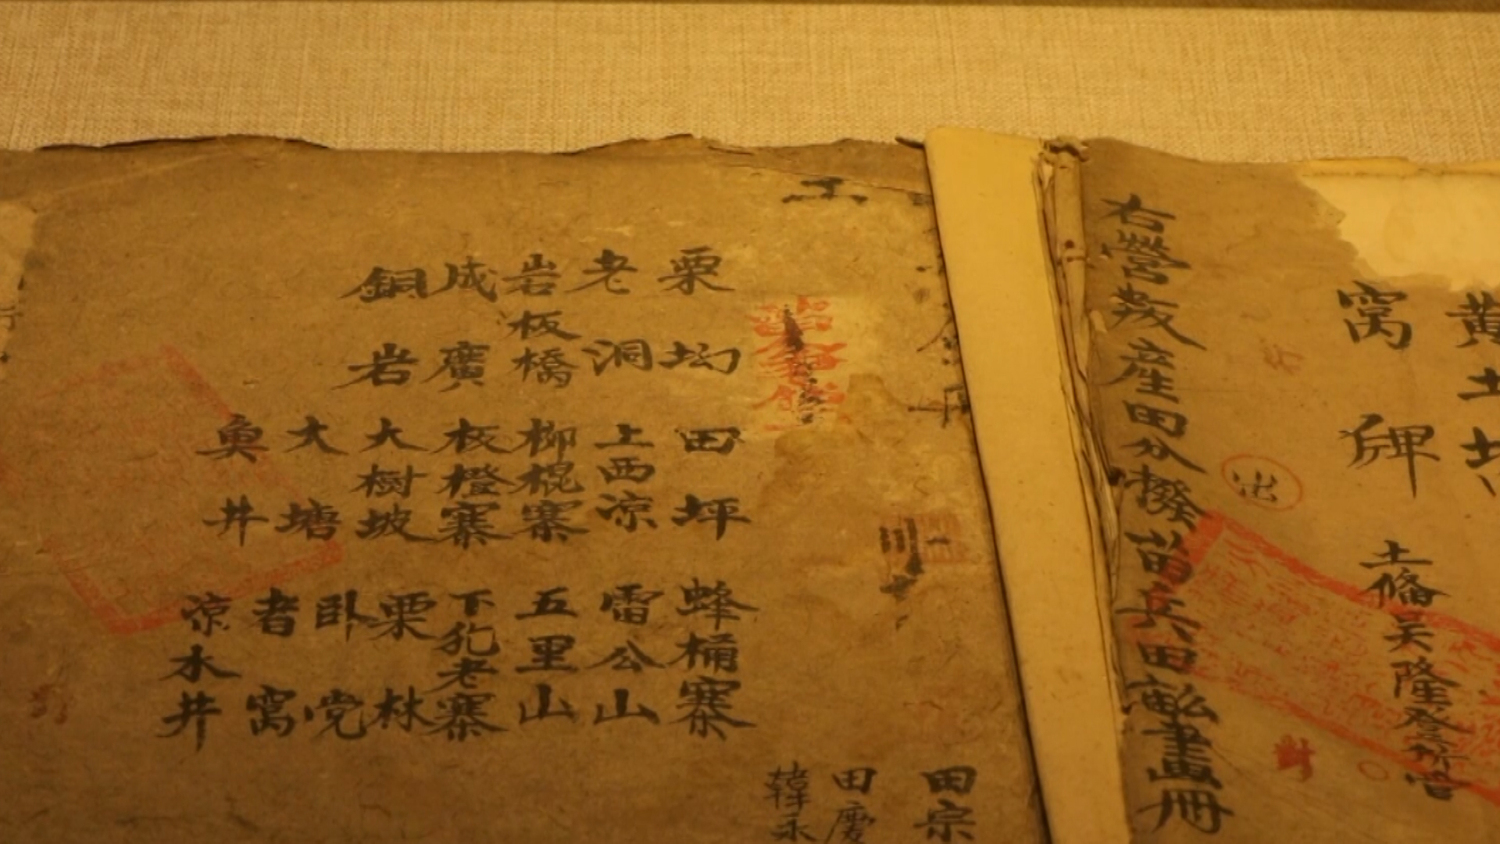 黄土
窩
土俻吳隆登所管
出
對
右營叛產田分撥苗兵田畝畫冊
田宗
田慶
韓永
栗坳 田坪 蜂桶寨
老洞 上西凉 雷公山
岩板橋 柳棍寨 五里山
成廣 板橙寨 下犵老寨
銅岩 大樹坡 栗林
大塘 卧党
魚井 者窩
凉水井